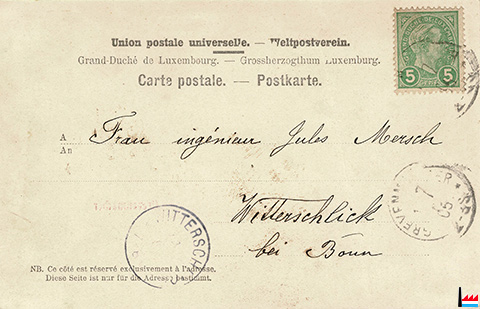 Union postale universelle. — Weltpostverein.
Grand-Duché de Luxembourg. — Grossherzogthum Luxemburg.
Carte postale. — Postkarte.
5 5
A
An
Frau ingénieur Jules Mersch
Witterschlick
bei Bonn
GREVENM
7
05
WITTERSCH
NB. Ce côté est réservé exclusivement à l'adresse.
Diese Seite ist nur für die Adresse bestimmt.